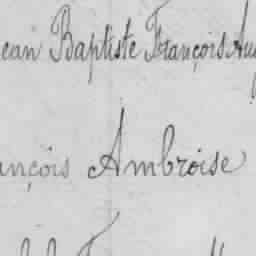 ean Baptiste François Au
ançois Ambroise